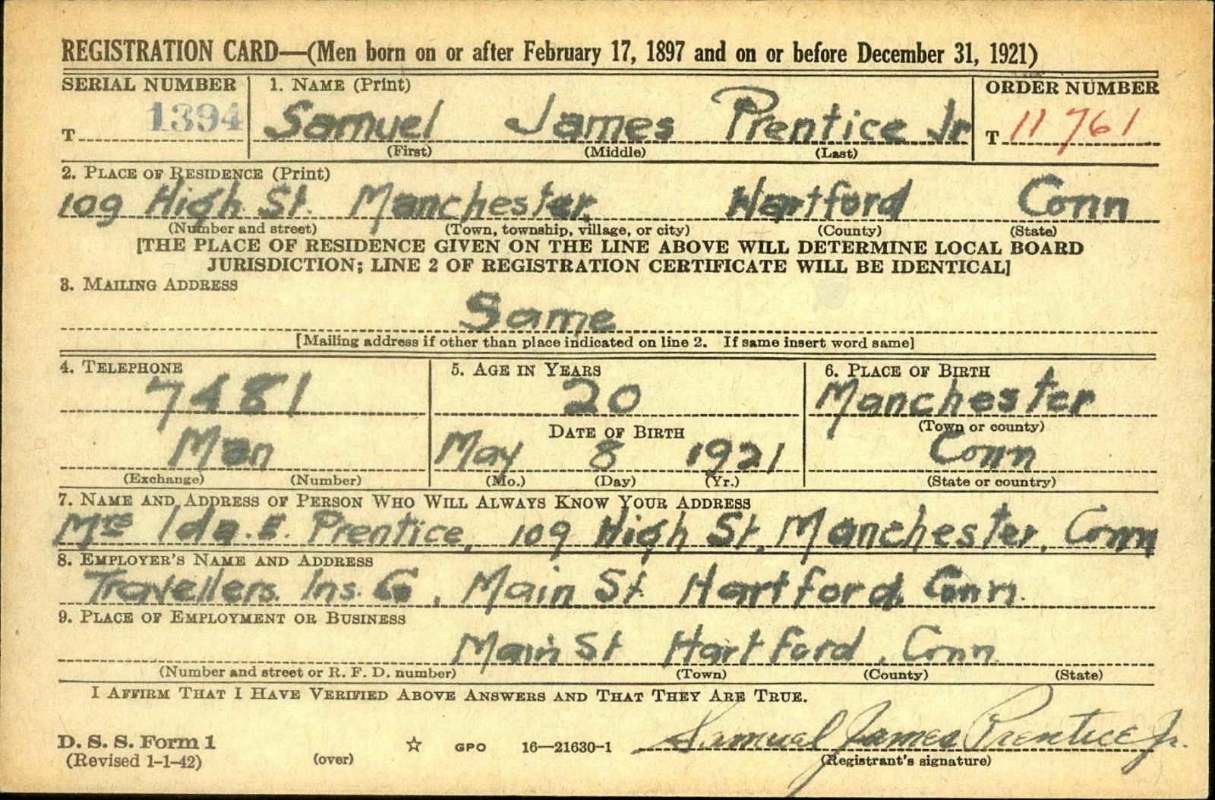 REGISTRATION CARD—(Men born on or after February 17, 1897 and on or before December 31, 1921)
SERIAL NUMBER 1. NAME (Print) ORDER NUMBER
T 1394 Samuel James Prentice Jr T 11761
(First) (Middle) (Last)
2. PLACE OF RESIDENCE (Print)
109 High St. Manchester Hartford Conn
(Number and street) (Town, township, village, or city) (County) (State)
[THE PLACE OF RESIDENCE GIVEN ON THE LINE ABOVE WILL DETERMINE LOCAL BOARD
JURISDICTION; LINE 2 OF REGISTRATION CERTIFICATE WILL BE IDENTICAL]
3. MAILING ADDRESS
Same
[Mailing address if other than place indicated on line 2. If same insert word same]
4. TELEPHONE 5. AGE IN YEARS 6. PLACE OF BIRTH
7481 20 Manchester
DATE OF BIRTH (Town or county)
Man May 8 1921 Conn
(Exchange) (Number) (Mo.) (Day) (Yr.) (State or country)
7. NAME AND ADDRESS OF PERSON WHO WILL ALWAYS KNOW YOUR ADDRESS
Mrs Ida. E. Prentice, 109 High St, Manchester, Conn
8. EMPLOYER'S NAME AND ADDRESS
Travellers. Ins. Co, Main St Hartford, Conn.
9. PLACE OF EMPLOYMENT OR BUSINESS
Main St Hartford, Conn.
(Number and street or R. F. D. number) (Town) (County) (State)
I AFFIRM THAT I HAVE VERIFIED ABOVE ANSWERS AND THAT THEY ARE TRUE.
Samuel James Prentice Jr.
D. S. S. Form 1 ☆ GPO 16—21630-1 (Registrant's signature)
(Revised 1-1-42) (over)